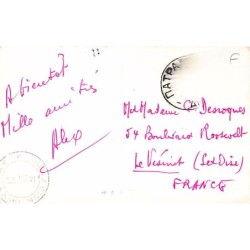 A bientot
Mille amitiés
Alex
ΠΑΤΡΑ
M et Madame C. Desroques
54 Boulevard Roosevelt
Le Vésinet (S et Oise)
FRANCE
F